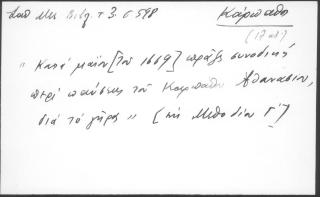 Σαθ Μεσ Βιβλ. τ 3. σ 598 Κάρπαθο
(17 αι)
"Κατά μαϊον [του 1669] πράξις συνοδική
περί παύσεως του Καρπάθου Αθανασίου,
διά το γήρας" (επί Μεθοδίου Γ΄)